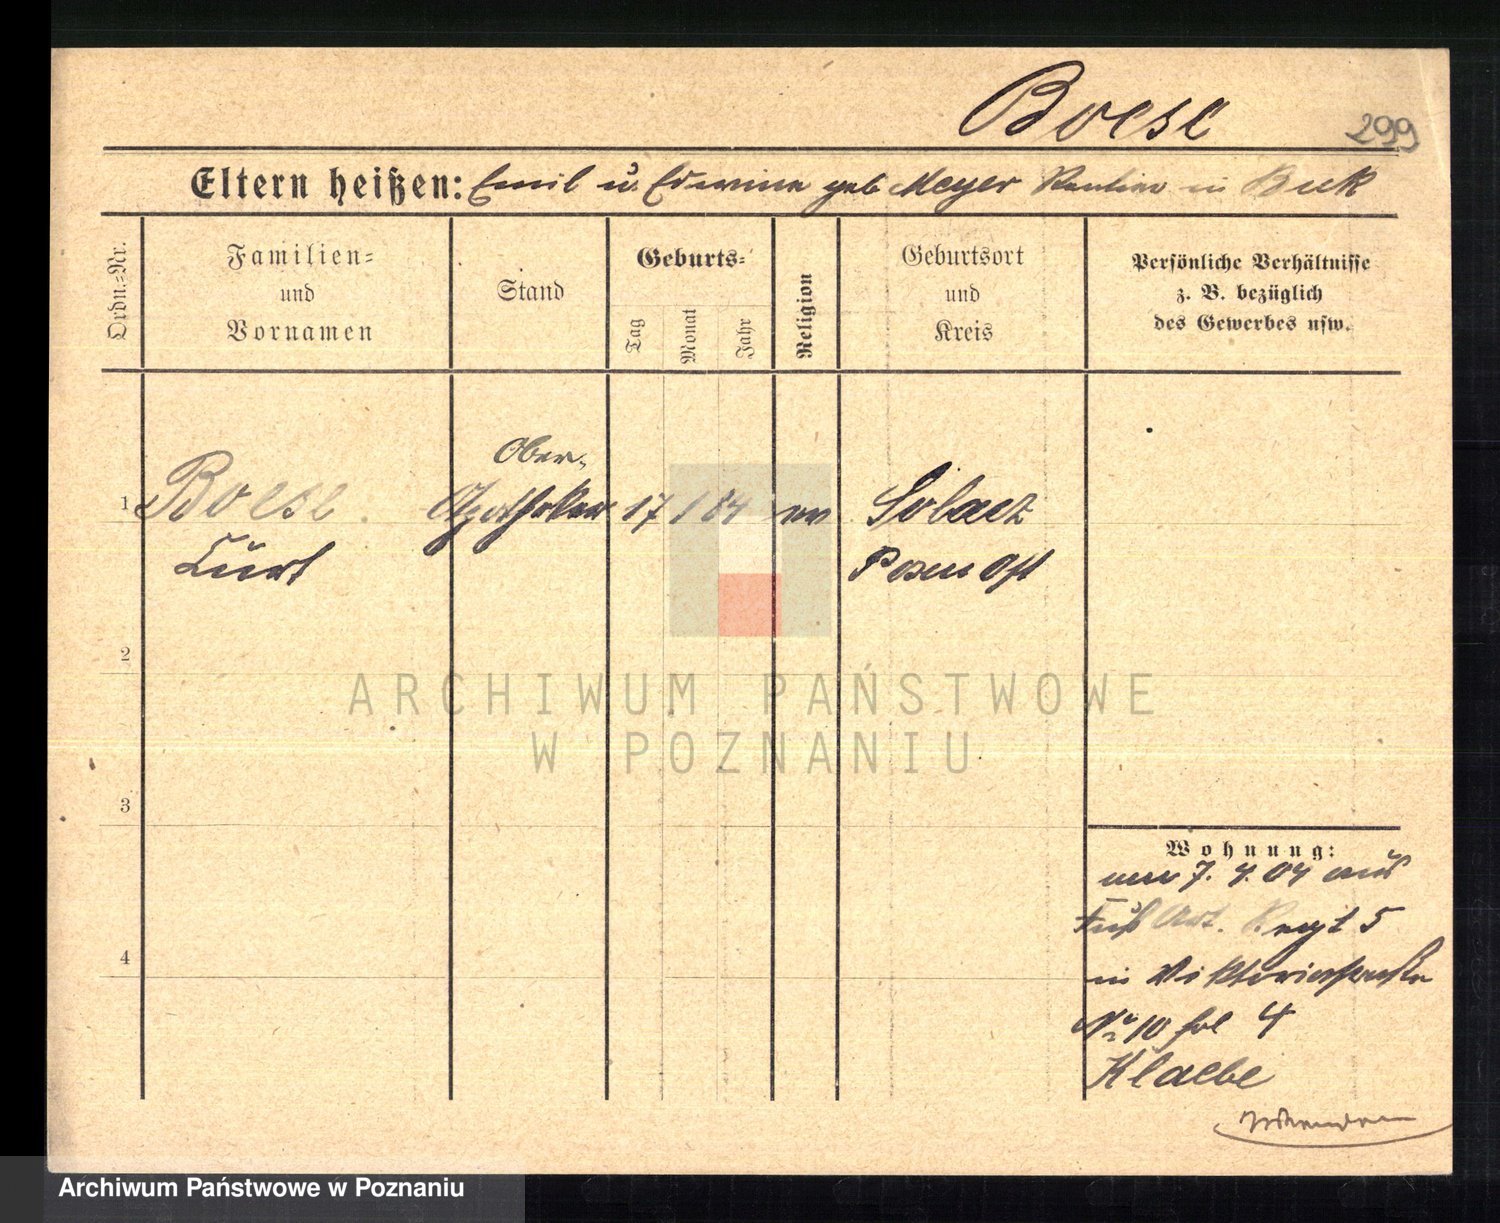 Boese
299
Eltern heißen: Emil u. Edwina geb Meyer Rentier in Buk
Ordn.=Nr.
Familien= und Vornamen
Stand
Geburts=
Tag
Monat
Jahr
Religion
Geburtsort und Kreis
Persönliche Verhältnisse
z. B. bezüglich
des Gewerbes usw.
Ober-
1 Boese Apotheker 17 1 84 ev Solacz
Curt Posen Ost
2
ARCHIWUM PAŃSTWOWE
W POZNANIU
3
Wohnung:
7. 4. 04 aus
Fuß Art. Regt 5
in
No 10 fol 4
Klaebe
4
Archiwum Państwowe w Poznaniu